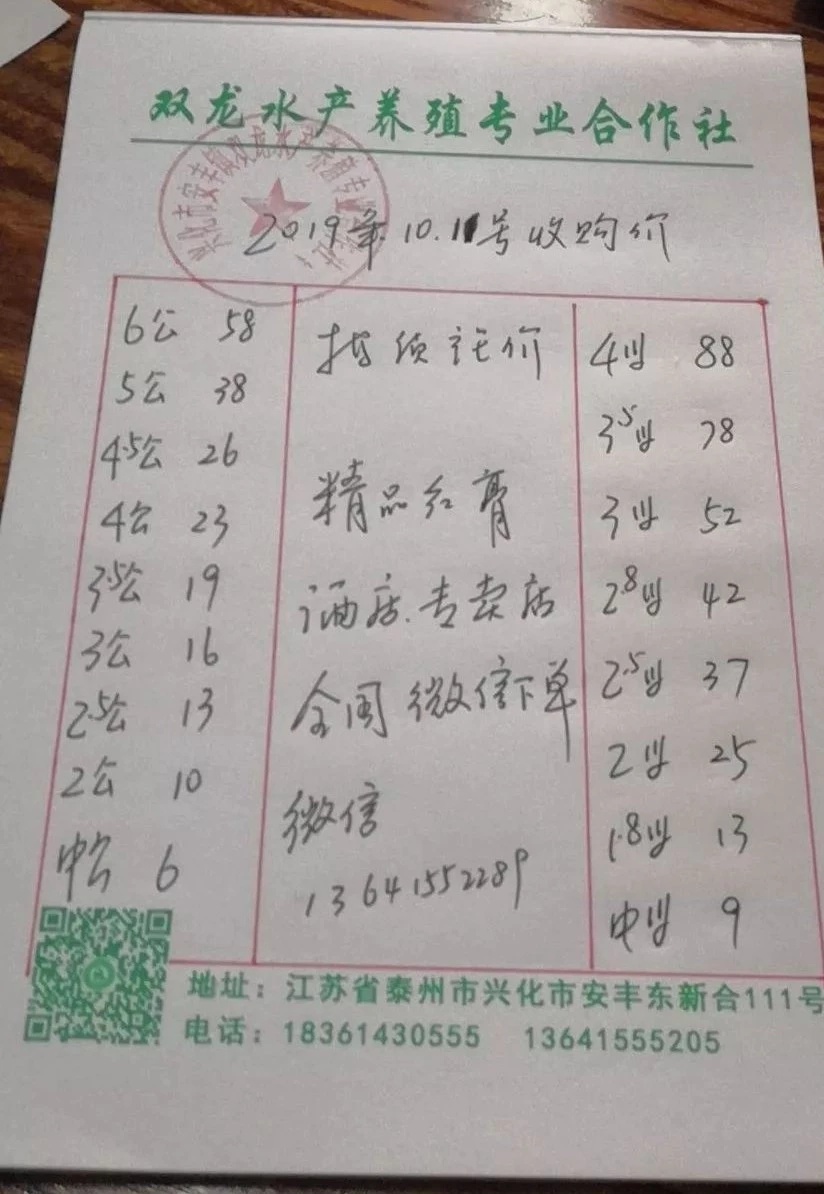 双龙水产养殖专业合作社
兴化市安丰镇双龙水产养殖专业合作社
2019年.10.11号收购价
6公 58
5公 38
4.5公 26
4公 23
3.5公 19
3公 16
2.5公 13
2公 10
中公 6
价
精品红膏
酒店.专卖店
全国微信下单
微信
13641552289
4母 88
3.5母 78
3母 52
2.8母 42
2.5母 37
2母 25
1.8母 13
中母 9
地址：江苏省泰州市兴化市安丰东新合111号
电话：18361430555 13641555205